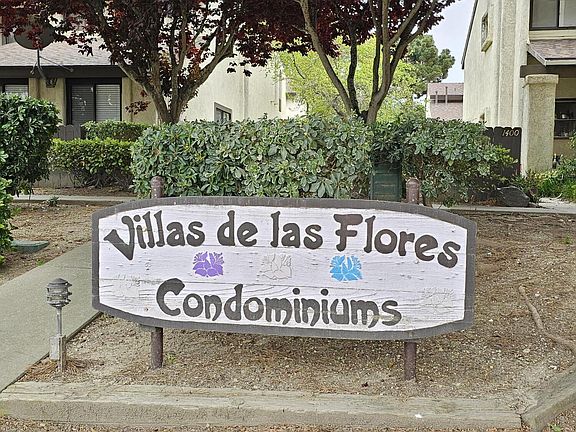 1400
Villas de las Flores
Condominiums